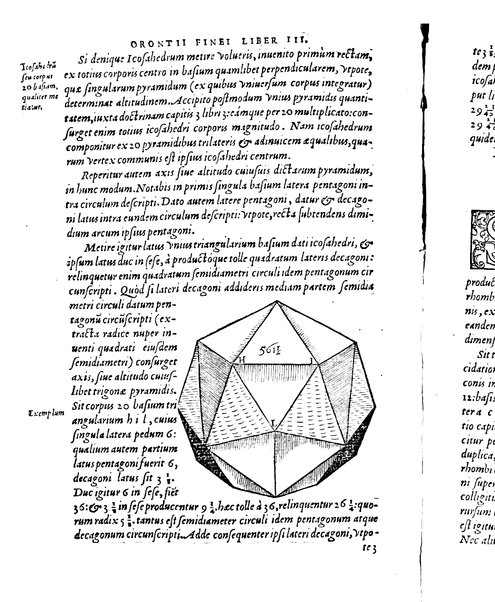 ORONTII FINEI LIBER III.
Icosahedrũ
seu corpus
20 basium,
qualiter me
tiatur.
Si denique Icosahedrum metire volueris, inuenito primùm rectam,
ex totius corporis centro in basium quamlibet perpendicularem, vtpote,
quæ singularum pyramidum (ex quibus vniuersum corpus integratur)
determinat altitudinem. Accipito postmodum vnius pyramidis quanti-
tatem, iuxta doctrinam capitis 3 libri 3: eámque per 20 multiplicato: con-
surget enim totius icosahedri corporis magnitudo. Nam icosahedrum
componitur ex 20 pyramidibus trilateris & adinuicem æqualibus, qua-
rum vertex communis est ipsius icosahedri centrum.
Reperitur autem axis siue altitudo cuiusuis dictarum pyramidum,
in hunc modum. Notabis in primis singula basium latera pentagoni in-
tra circulum descripti. Dato autem latere pentagoni, datur & decago-
ni latus intra eundem circulum descripti: vtpote, recta subtendens dimi-
dium arcum ipsius pentagoni.
Metire igitur latus vnius triangularium basium dati icosahedri, &
ipsum latus duc in sese, à productóque tolle quadratum lateris decagoni:
relinquetur enim quadratum semidiametri circuli idem pentagonum cir
cunscripti. Quòd si lateri decagoni addideris mediam partem semidia
metri circuli datum pen-
tagonũ circũscripti (ex-
tracta radice nuper in-
uenti quadrati eiusdem
semidiametri) consurget
axis, siue altitudo cuius-
libet trigonæ pyramidis.
Exemplum
Sit corpus 20 basium tri
angularium h i l, cuius
singula latera pedum 6:
qualium autem partium
latus pentagoni fuerit 6,
decagoni latus sit 3 1/8.
Duc igitur 6 in sese, fiẽt
36: & 3 1/8 in sese producentur 9 3/4. hæc tolle à 36, relinquentur 26 1/4: quo-
rum radix 5 1/8. tantus est semidiameter circuli idem pentagonum atque
decagonum circunscripti. Adde consequenter ipsi lateri decagoni, vtpo-
te 3
561 1/2
H
I
L
te 3
dem p
icosah
put li
29
29
quide
product
rhomb
nis, ex
eandem
dimens
Sit t
cidation
conis in
12: basi
ter a c
tio capi
citur pe
duplica,
rhombi
ni super
colligiti
rursum
est igitu
Nec ali